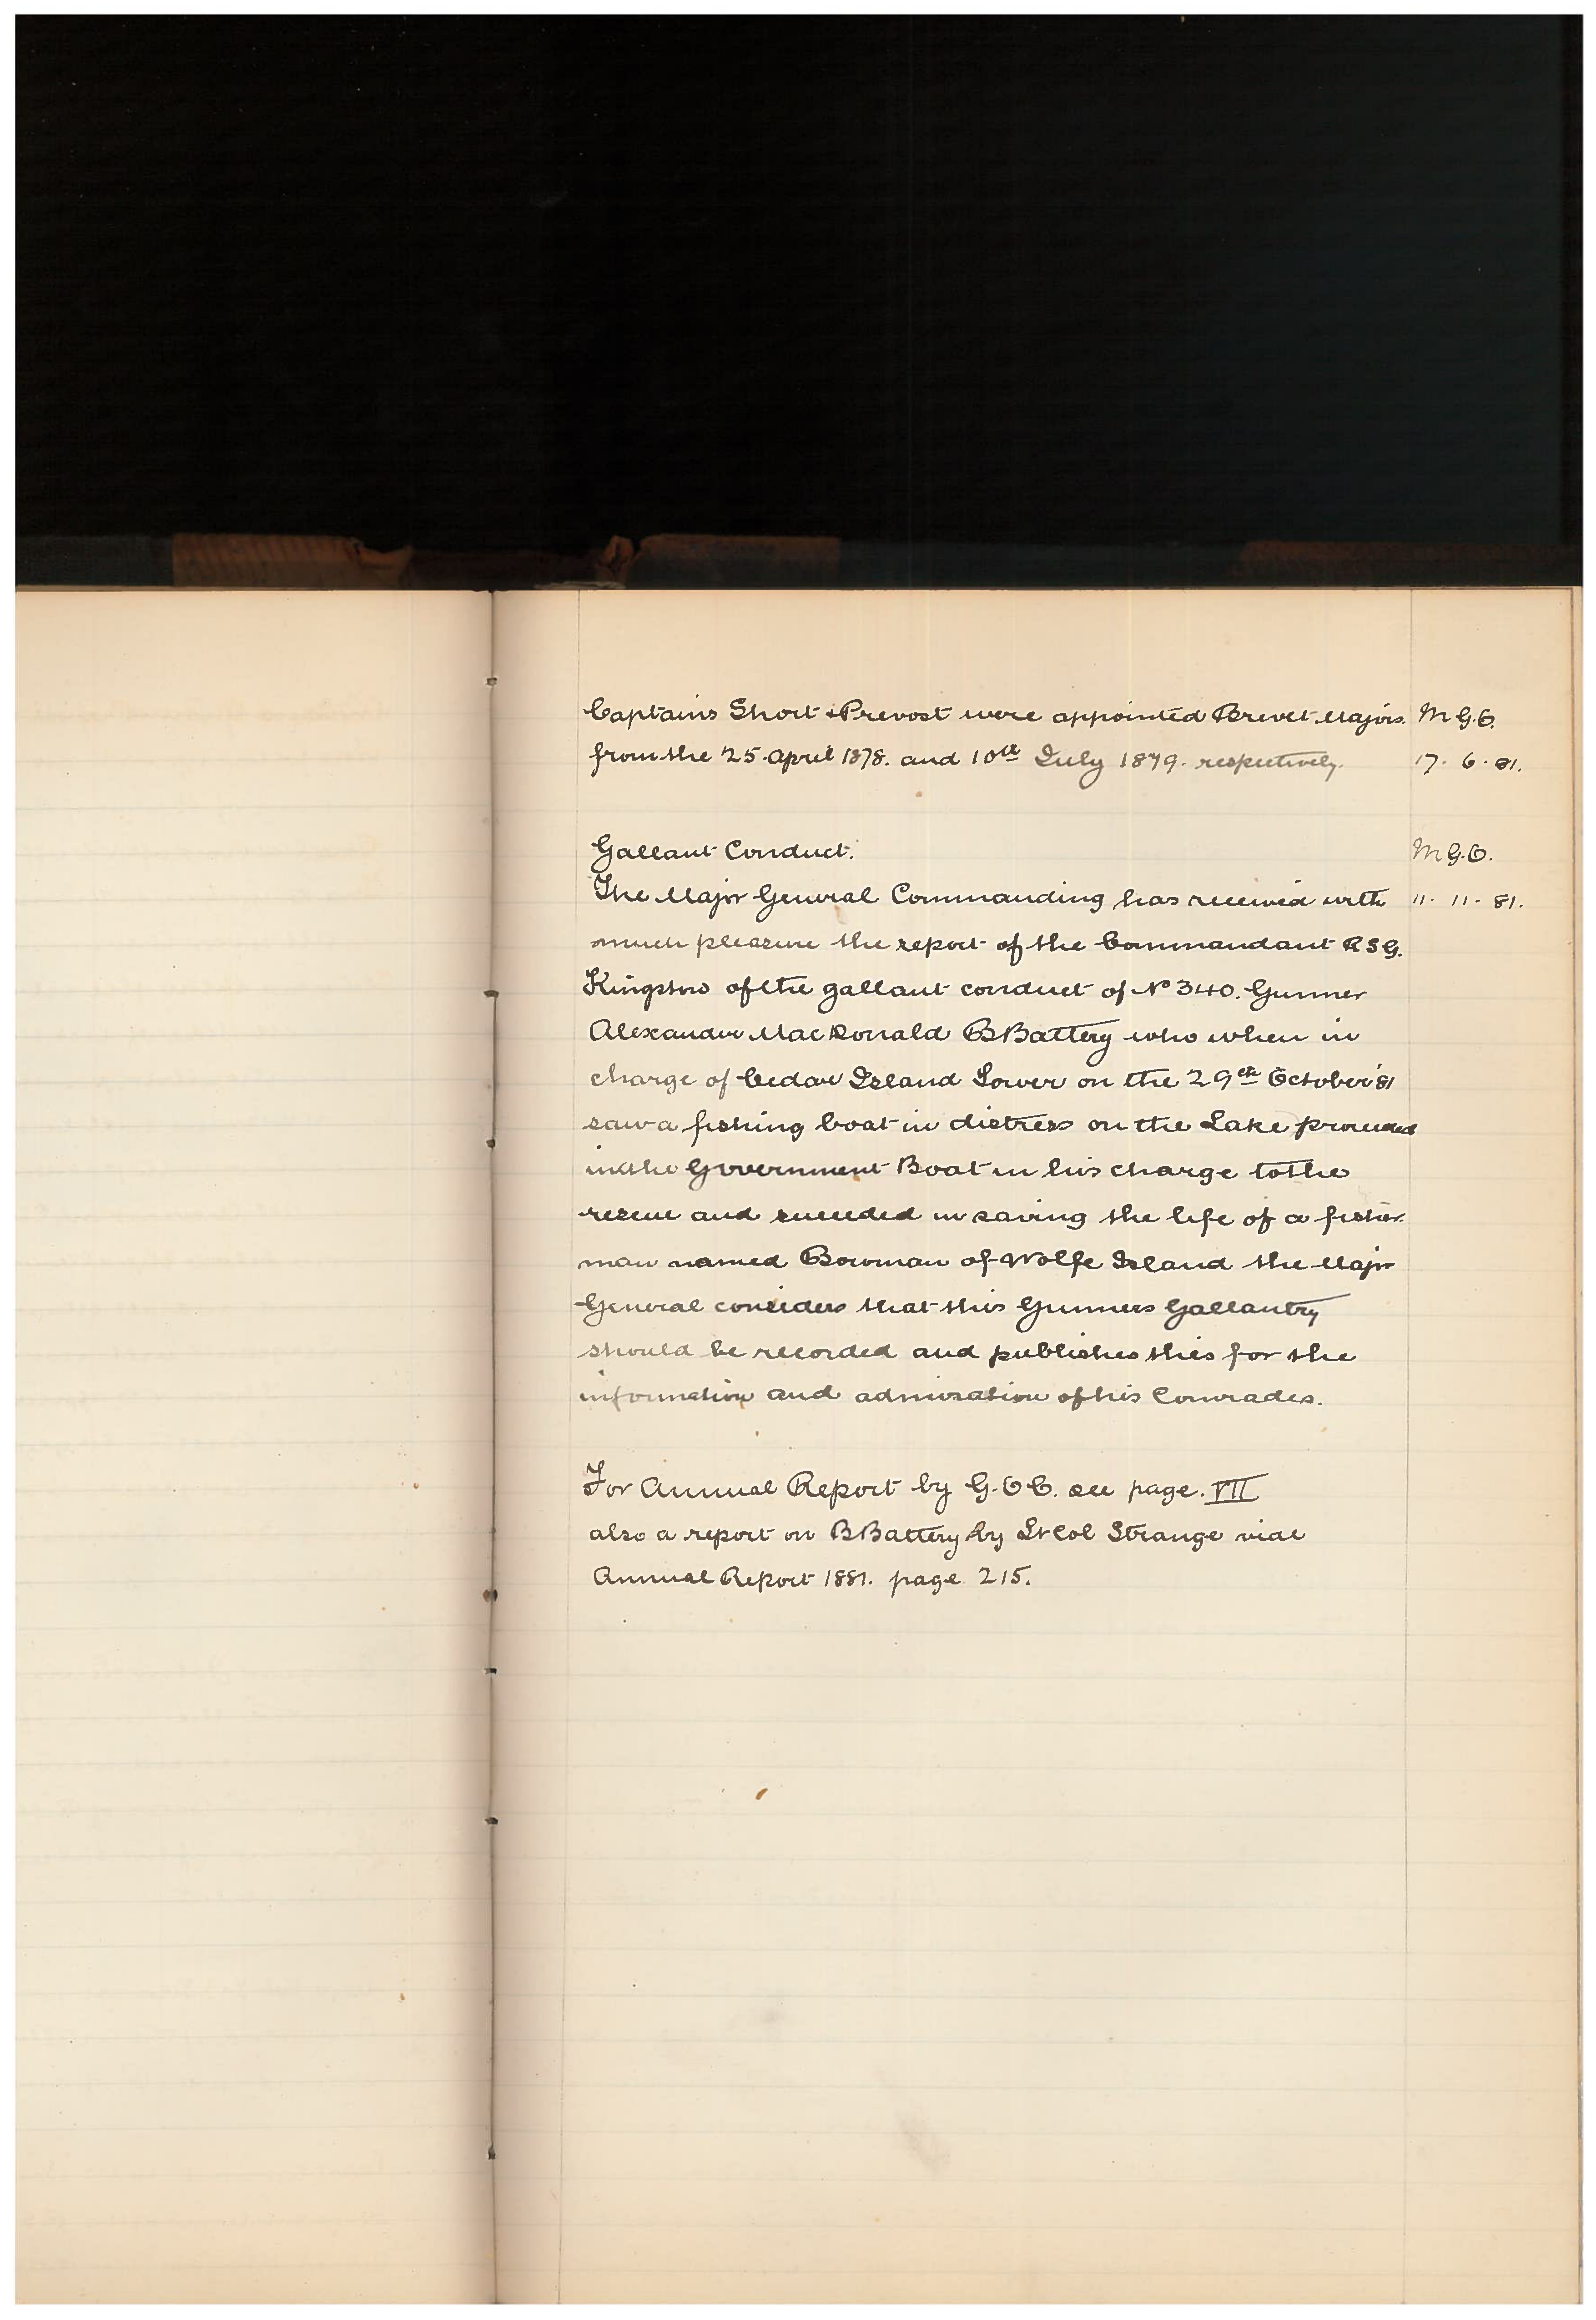 Captains Short & Prevost were appointed Brevet Majors. M G.O.
from the 25. April 1878. and 10th July 1879. respectively. 17. 6. 81.
Gallant Conduct. M G.O.
The Major General Commanding has received with 11. 11. 81.
much pleasure the report of the Commandant R S G.
Kingston of the gallant conduct of No 340. Gunner
Alexander MacDonald B Battery who when in
charge of Cedar Island Tower on the 29th October '81
saw a fishing boat in distress on the Lake proceeded
in the Government Boat in his charge to the
rescue and succeeded in saving the life of a fisher
man named Bowman of Wolfe Island the Major
General considers that this Gunners Gallantry
should be recorded and publishes this for the
information and admiration of his Comrades.
For Annual Report by G.O.C. see page. VII
also a report on B Battery by Lt Col Strange vide
Annual Report 1881. page 215.